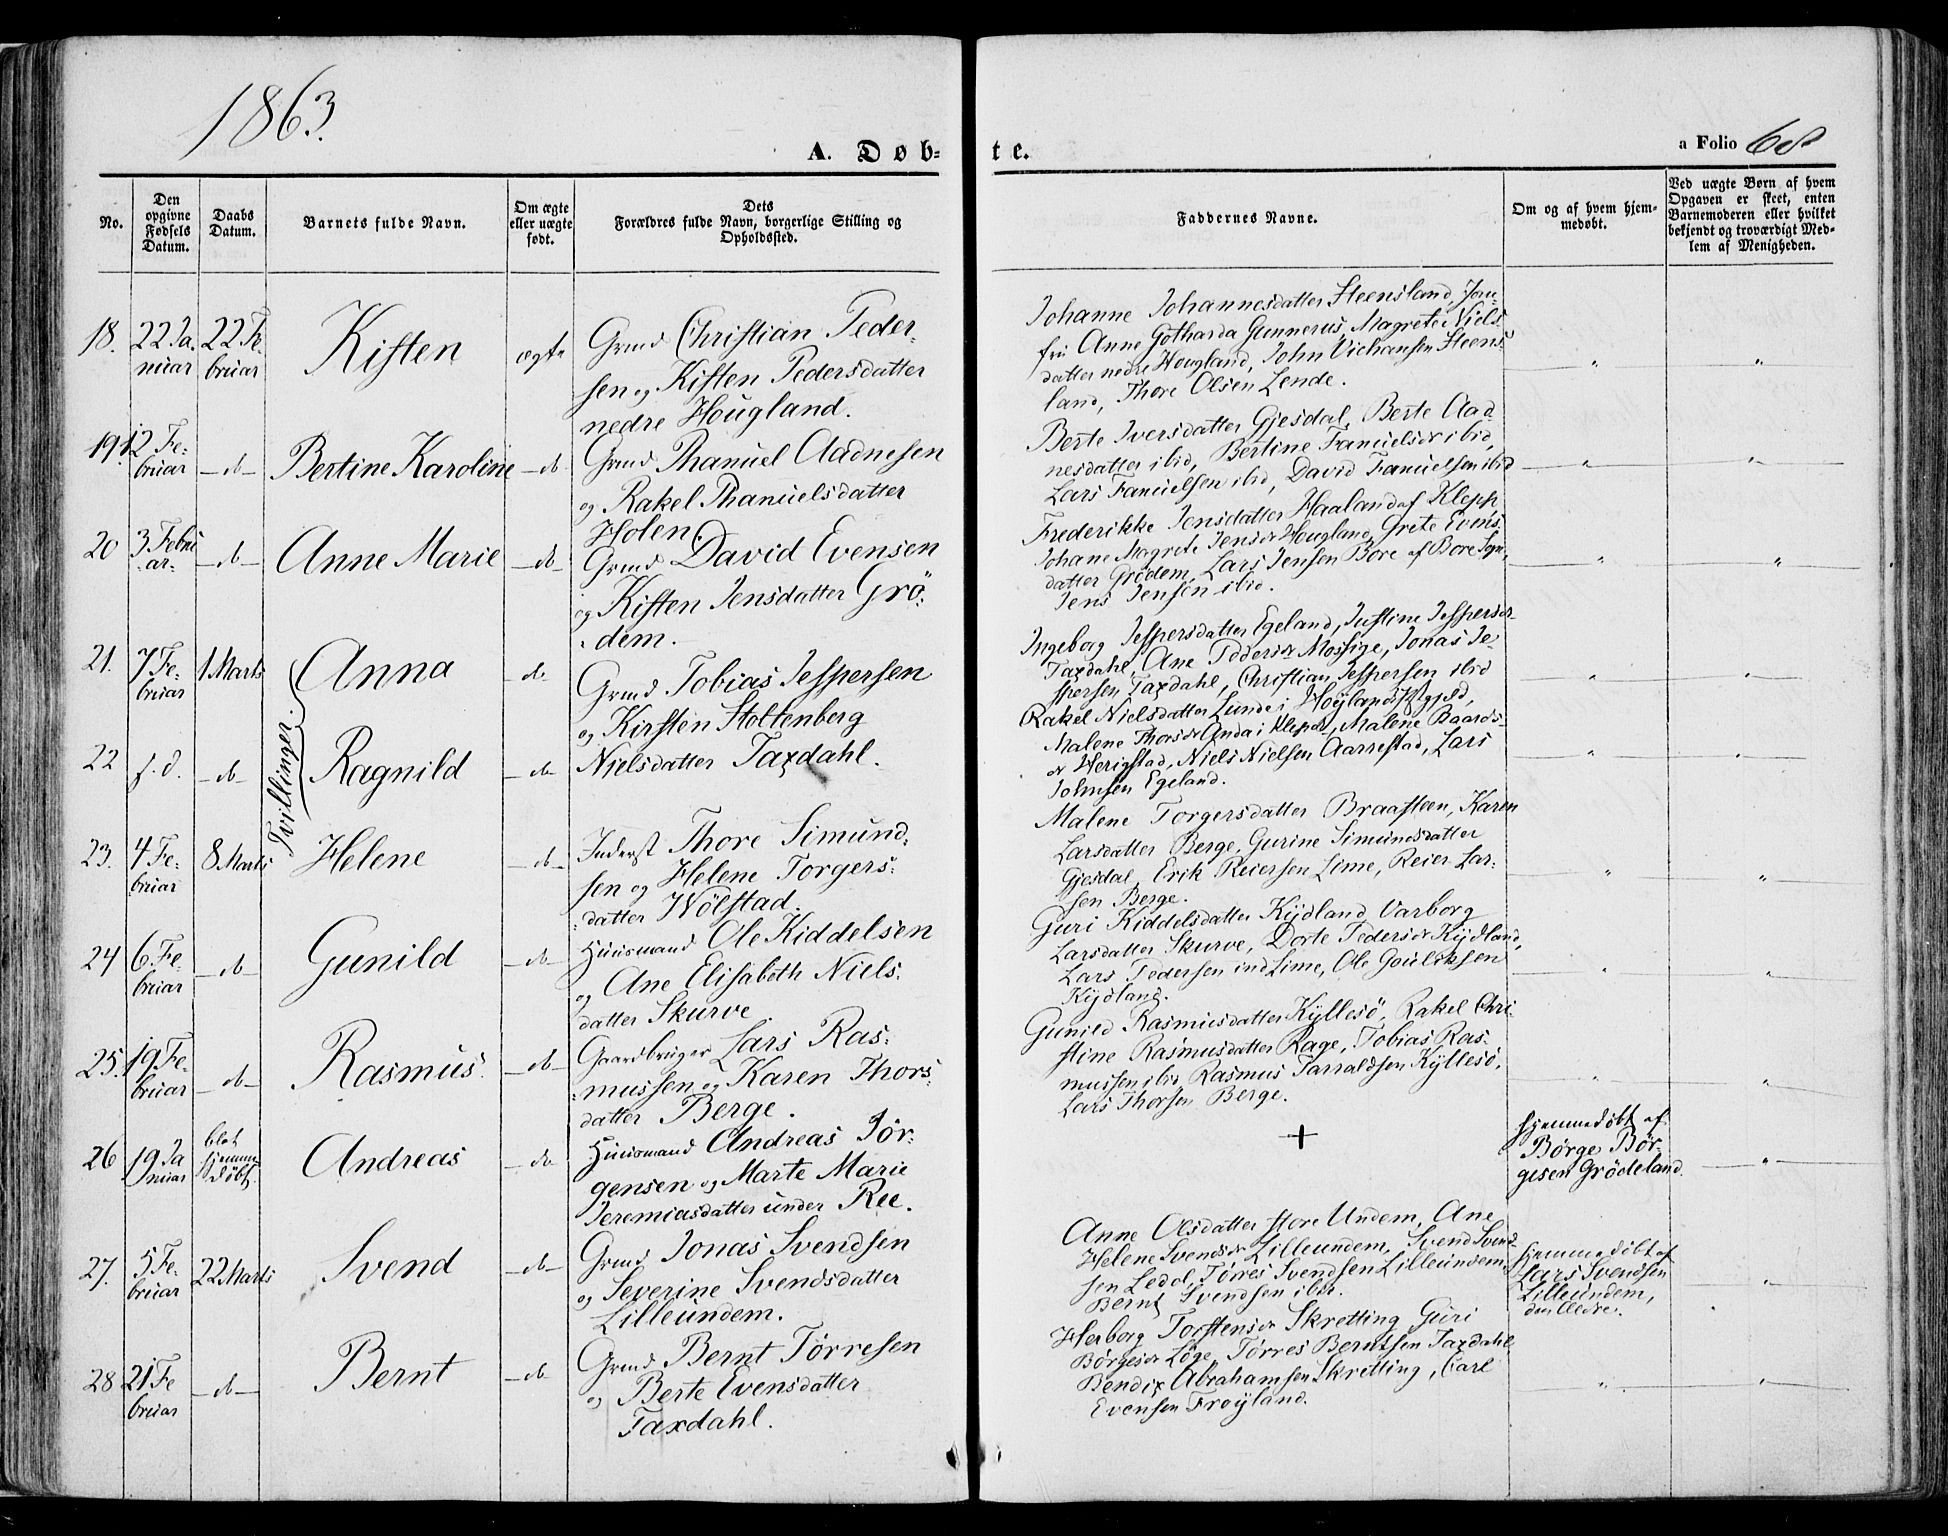 1863.
A. Døb-
te.
a Folio 68
No.
Den opgivne Fødsels Datum.
Daabs Datum.
Barnets fulde Navn.
Om ægte eller uægte født.
Dets Forældres fulde Navn, borgerlige Stilling og Opholdssted.
Faddernes Navne.
Om og af hvem hjem-
medøbt.
Ved uægte Børn af hvem
Opgaven er skeet, enten
Barnemoderen eller hvilket
bekjendt og troværdigt Med-
lem af Menigheden.
18. 22 Ja-
nuar
22 Fe-
bruar
Kisten
ægte
Grmd Christian Peder-
sen og Kisten Pedersdatter
nedre Hougland.
Johanne Johannesdatter Steensland, Jom-
fru Anne Gotharda Gunnerus, Magrete Niels-
datter nedre Hougland, John Vichansen Steens-
land, Thore Olsen Lende.
19. 12 Fe-
bruar
-do-
Bertine Karoline
-do
Grmd Thanuel Aadnesen
og Rakel Thanuelsdatter
Holen.
Berte Iversdatter Gjesdal, Berte Aad-
nesdatter ibid, Bertine Fanuelsdr ibid,
Lars Fanuelsen ibid, David Fanuelsen ibid
20 3 Febru-
ar-
-do-
Anne Marie
-do-
Grmd David Evensen
og Kisten Jensdatter Grö-
dem.
Frederikke Jensdatter Haaland af Klepp
Johane Magrete Jensdr Hougland, Grete Evens-
datter Grödem, Lars Jensen Bore af Bore Sogn,
Jens Jensen ibid.
21. 7 Fe-
bruar
1 Marts
Tvillinger.
Anna
-do-
Grmd Tobias Jespersen
og Kirsten Stoltenberg
Nielsdatter Taxdahl.
Ingeborg Jespersdatter Egeland, Justine Jespersdr
Taxdahl, Ane Pedersdr Mossige, Jonas Je-
spersen Taxdahl, Christian Jespersen ibid
22 s. d.
-do-
Ragnild
-do-
Rakel Nielsdatter Lunde i Høylands Pgjeld,
Malene Thorsdr Anda i Klep, Malene Baards-
dr Werigstad, Niels Nielsen Aarrestad, Lars
Johnsen Egeland.
23. 4 Fe-
bruar
8 Marts
Helene
-do-
Inderst Thore Simund-
sen og Helene Torgers-
datter Wölstad.
Malene Torgersdatter Braasteen, Karen
Larsdatter Berge, Gurine Simundsdatter
Gjesdal, Erik Reiersen Lime, Reier Lar-
sen Berge.
24 6 Fe-
bruar
-do-
Gunild
-do-
Huusmand Ole Kiddelsen
og Ane Elisabeth Niels-
datter Skurve
Guri Kiddelsdatter Kydland, Varborg
Larsdatter Skurve, Dorte Pedersdr Kydland,
Lars Pedersen ind Lime, Ole Gouliksen
Kydland.
25. 19. Fe-
bruar
-do-
Rasmus.
-do-
Gaardbruger Lars Ras-
mussen og Karen Thors-
datter Berge.
Gunild Rasmusdatter Kyllesö, Rakel Chri-
stine Rasmusdatter Rage, Tobias Ras-
mussen ibid, Rasmus Tarraldsen Kyllesö,
Lars Thorsen Berge.
26 19 Ja-
nuar
blot
hjemme-
døbt.
Andreas
-do-
Huusmand Andreas Jör-
gensen og Marte Marie
Jeremiasdatter under Ree.
+
hjemmedöbt af
Börge Bör-
gesen Grödeland.
27. 5 Fe-
bruar
22 Marts
Svend
-do-
Grmd Jonas Svendsen
og Severine Svendsdatter
Lilleundem.
Anne Olsdatter store Undem, Ane
Helene Svendsdr Lilleundem, Svend Svend-
sen Ledol, Törres Svendsen Lilleundem,
Bernt Svendsen ibid.
hjemmedöbt af
Lars Svendsen
Lilleundem,
den Ældre.
28 21 Fe-
bruar
-do-
Bernt
-do-
Grmd Bernt Törresen
og Berte Evensdatter
Taxdahl.
Herborg Torstensdr Skretting Guri
Börgesdr Löge, Törres Berntsen Taxdahl,
Bendix Abrahamsen Skretting, Carl
Evensen Fröyland.